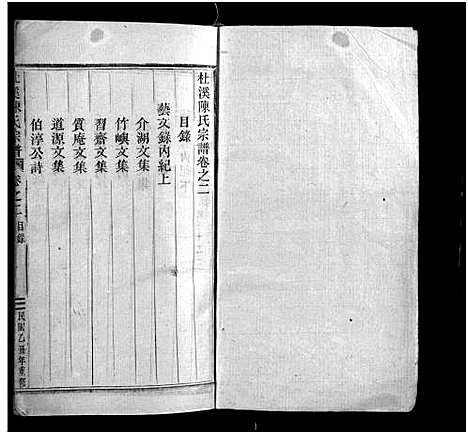 杜溪陳氏宗譜卷之二
目錄
藝文錄丙紀上
介湖文集
竹嶼文集
習齋文集
質庵文集
道源文集
伯淳公詩
杜溪陳氏宗譜 卷之二 目錄
民國乙丑年重修